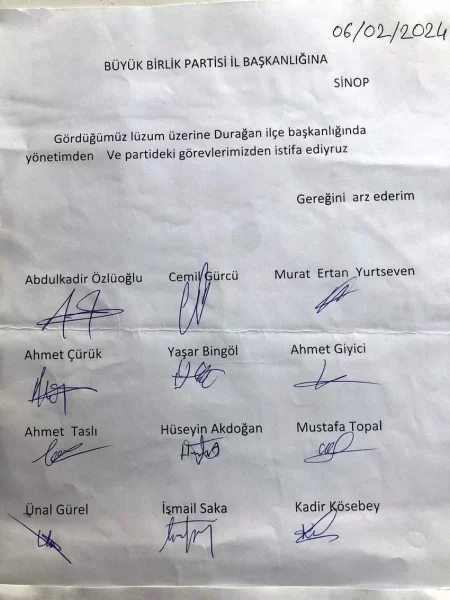 06/02/2024
BÜYÜK BİRLİK PARTİSİ İL BAŞKANLIĞINA
SİNOP
Gördüğümüz lüzum üzerine Durağan ilçe başkanlığında
yönetimden Ve partideki görevlerimizden istifa ediyruz
Gereğini arz ederim
Abdulkadir Özlüoğlu Cemil Gürcü Murat Ertan Yurtseven
Ahmet Çürük Yaşar Bingöl Ahmet Giyici
Ahmet Taslı Hüseyin Akdoğan Mustafa Topal
Ünal Gürel İşmail Saka Kadir Kösebey